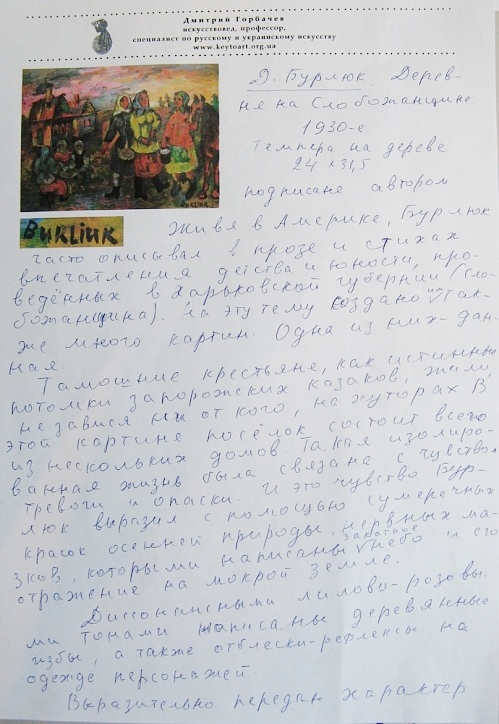 Дмитрий Горбачев
искусствовед, профессор,
специалист по русскому и украинскому искусству
www.keytoart.org.ua
Д. Бурлюк. Дерев-
ня на Слобожанщине.
1930-е
Темпера на дереве
24 х 31,5
подписане автором
BURLIUK
BURLIUK
Живя в Америке, Бурлюк
часто описывал в прозе и стихах
впечатления детства и юности, про-
ведённых в Харьковской губернии (Сло-
божанщина). На эту тему создано им так-
же много картин. Одна из них - дан-
ная.
Тамошние крестьяне, как истинные
потомки запорожских казаков, жили
независимы от кого, на хуторах. В
этой картине посёлок состоит всего
из нескольких домов. Такая изолиро-
ванная жизнь была связана с чувством
тревоги и опаски. И это чувство Бур-
люк выразил с помощью сумеречных
красок осенней природы, нервных ма-
зков, которыми написаны закатное небо и его
отражение на мокрой земле.
Диссонансными лилово-розовы-
ми тонами написаны деревянные
избы, а также отблески-рефлексы на
одежде персонажей.
Выразительно передан характер